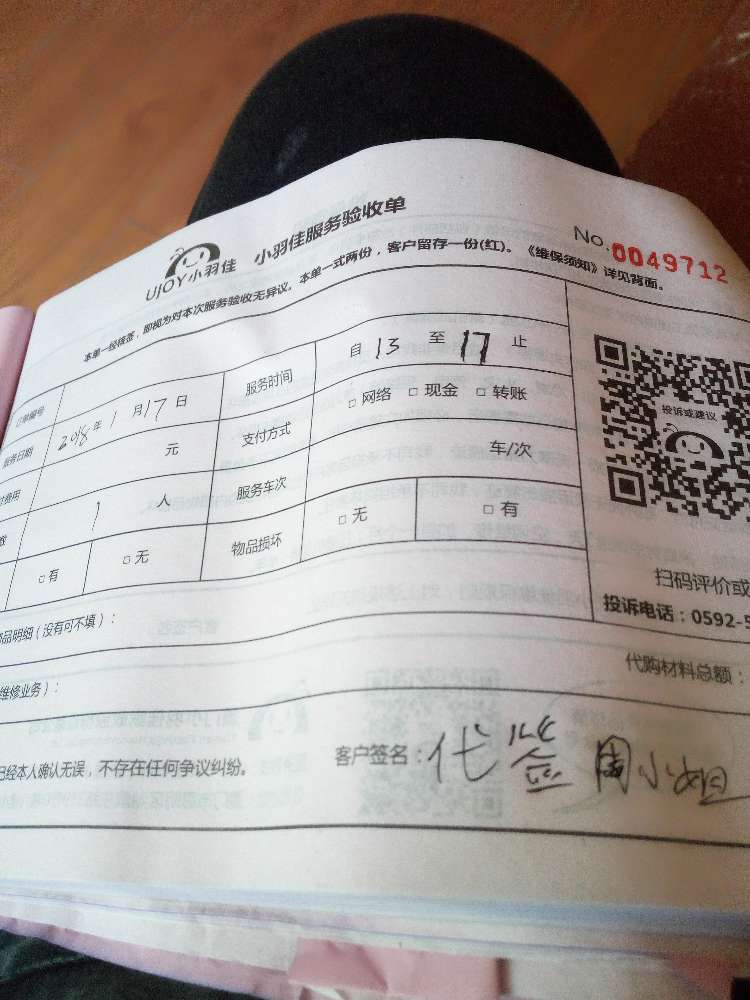 UJOY小羽佳 小羽佳服务验收单
No.0049712
本单一经核签，即视为对本次服务验收无异议。本单一式两份，客户留存一份(红)。《维保须知》详见背面。
订单编号 服务时间 自 13 至 17 止
服务日期 2018年 1月17日 支付方式 □网络 □现金 □转账
费用 元 服务车次 车/次
数 1 人 物品损坏 □无 □有
□有 □无
投诉或建议
扫码评价或
投诉电话：0592-5
品明细（没有可不填）：
代购材料总额：
维修业务）：
已经本人确认无误，不存在任何争议纠纷。 客户签名：代签 周小姐